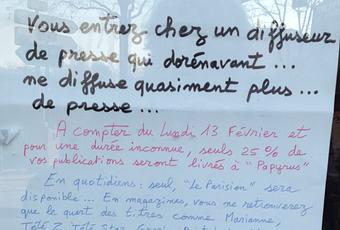 Vous entrez chez un diffuseur
de presse qui dorénavant ...
ne diffuse quasiment plus ...
de presse ...
A compter du Lundi 13 Février et
pour une durée inconnue, seuls 25 % de
vos publications seront livrés à "Papyrus"
En quotidiens : seul, "Le Parisien" sera
disponible ... En magazines, vous ne retrouverez
que le quart des titres comme Marianne,
Télé Z, Télé Star,